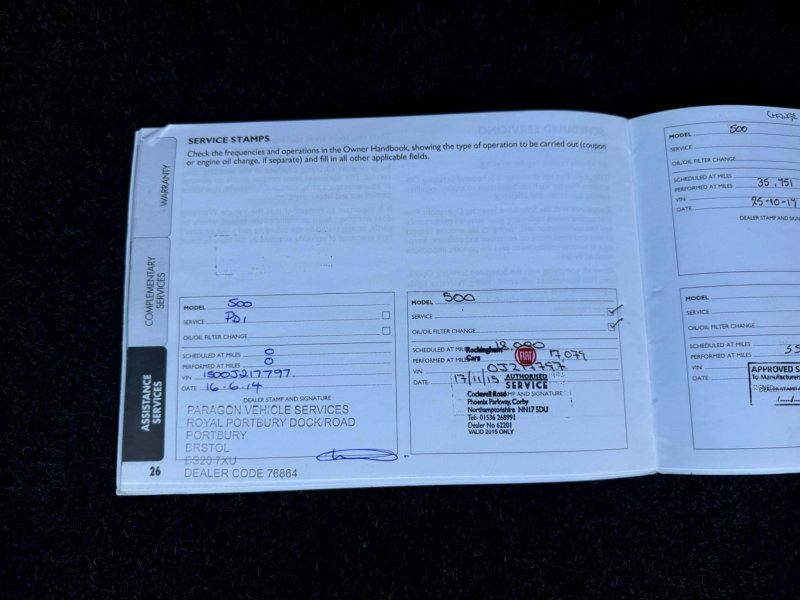 SERVICE STAMPS
Check the frequencies and operations in the Owner Handbook, showing the type of operation to be carried out (coupon
or engine oil change, if separate) and fill in all other applicable fields.
WARRANTY
COMPLEMENTARY
SERVICES
ASSISTANCE
SERVICES
26
MODEL 500
SERVICE PDI
OIL/OIL FILTER CHANGE
SCHEDULED AT MILES 0
PERFORMED AT MILES 0
VIN 1500J217797.
DATE 16-6.14
DEALER STAMP AND SIGNATURE
PARAGON VEHICLE SERVICES
ROYAL PORTBURY DOCK/ROAD
PORTBURY
BRSTOL
BS20 7XU
DEALER CODE 76864
MODEL 500
SERVICE
OIL/OIL FILTER CHANGE
SCHEDULED AT MILES 18,000
PERFORMED AT MILES 17,079
VIN 0J217797
DATE 17/11/15
Rockingham
Cars
FIAT
AUTHORISED
SERVICE
Cockerell Road
Phoenix Parkway, Corby
Northamptonshire NN17 5DU
Tel:- 01536 268991
Dealer No 62201
VALID 2015 ONLY
MODEL 500
SERVICE
OIL/OIL FILTER CHANGE
SCHEDULED AT MILES
PERFORMED AT MILES 35,951
VIN
DATE 25-10-17
DEALER STAMP AND SIGNA
MODEL
SERVICE
OIL/OIL FILTER CHANGE
SCHEDULED AT MILES
PERFORMED AT MILES 35
VIN
DATE
APPROVED S
To Manufacturer